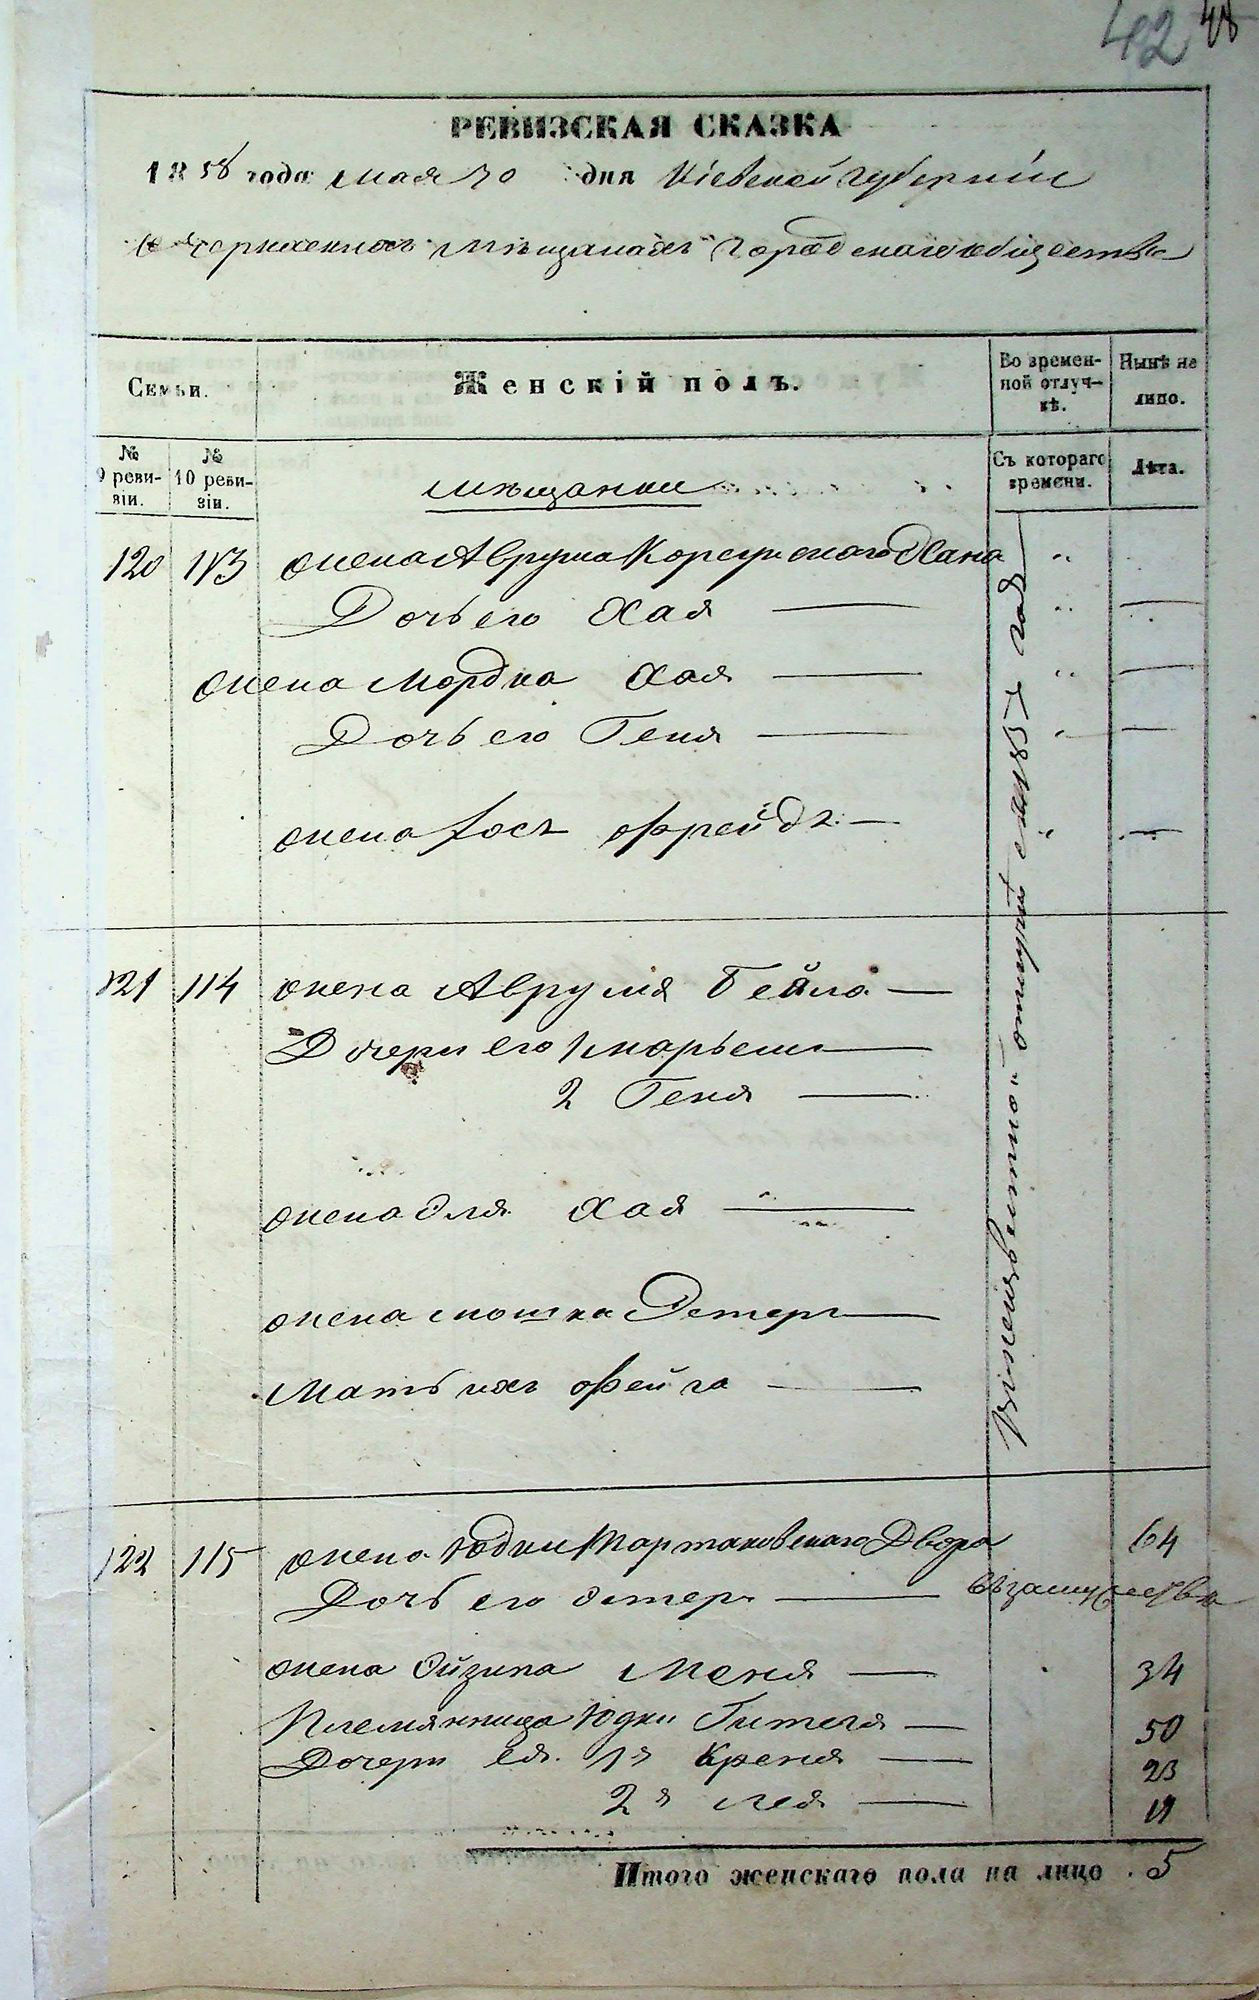 42 48
РЕВИЗСКАЯ СКАЗКА
1858 года мая 30 дня Кіевской Губерніи
мѣщанахъ Городскаго общества
Семьи.
Женскій полъ.
Во временной отлучкѣ.
Нынѣ на лицо.
№ 9 ревизіи.
№ 10 ревизіи.
Съ котораго времени.
Лѣта.
мѣщанки
120 113 жена Аврума Корсунского Хана
Дочь его Хая
жена Мордка Хая
Дочь его Геня
жена Фрейда
121 114 жена Аврумя Бейла
Дочери его 1
2 Геня
жена Эля Хая
жена Мошка Эстеръ
Мать ихъ Фейга
отлучкѣ съ 1857 года
122 115 жена Юдки Двора 64
Дочь его Эстеръ въ замужествѣ
жена Ойзипа Меня 34
Племянница Юдки Гителя 50
Дочери ея 1я Креня 23
2я Лея 19
Итого женскаго пола на лицо 5